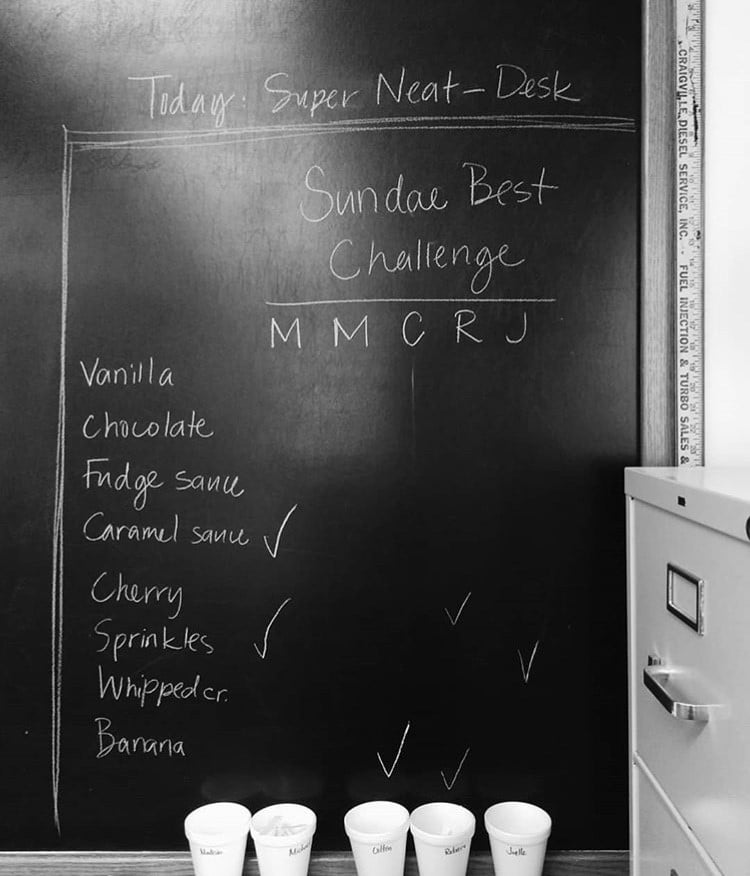 Today: Super Neat-Desk
Sundae Best
Challenge
M M C R J
Vanilla
Chocolate
Fudge sauce
Caramel sauce ✓
Cherry ✓
Sprinkles ✓ ✓
Whipped cr.
Banana ✓ ✓
Madison Michael Colton Rebecca Joelle
CRAIGVILLE DIESEL SERVICE, INC. · FUEL INJECTION & TURBO SALES &